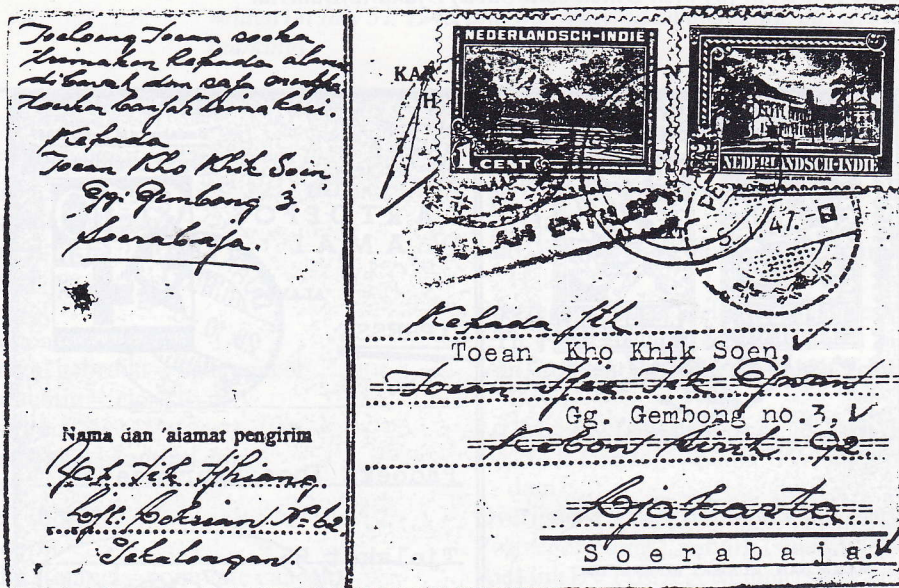 Toeloeng Toean soeka
trimakan kepada alamat
dibawah dan saja
banjak trima kasi.
Kepada
Toean Kho Khik Soen
Gg. Gembong 3.
Soerabaja.
Nama dan alamat pengirim
Tek Tjhiang.
No 62
Pekalongan.
KAR
NEDERLANDSCH-INDIË
1 CENT
NEDERLANDSCH-INDIË
ALAMAT
PE
5. .47.
Kepada Jth.
Toean Kho Khik Soen,
Toean Tjie Tek
Gg. Gembong no.3,
Kebon Sirih 92.
Djakarta.
Soerabaja.